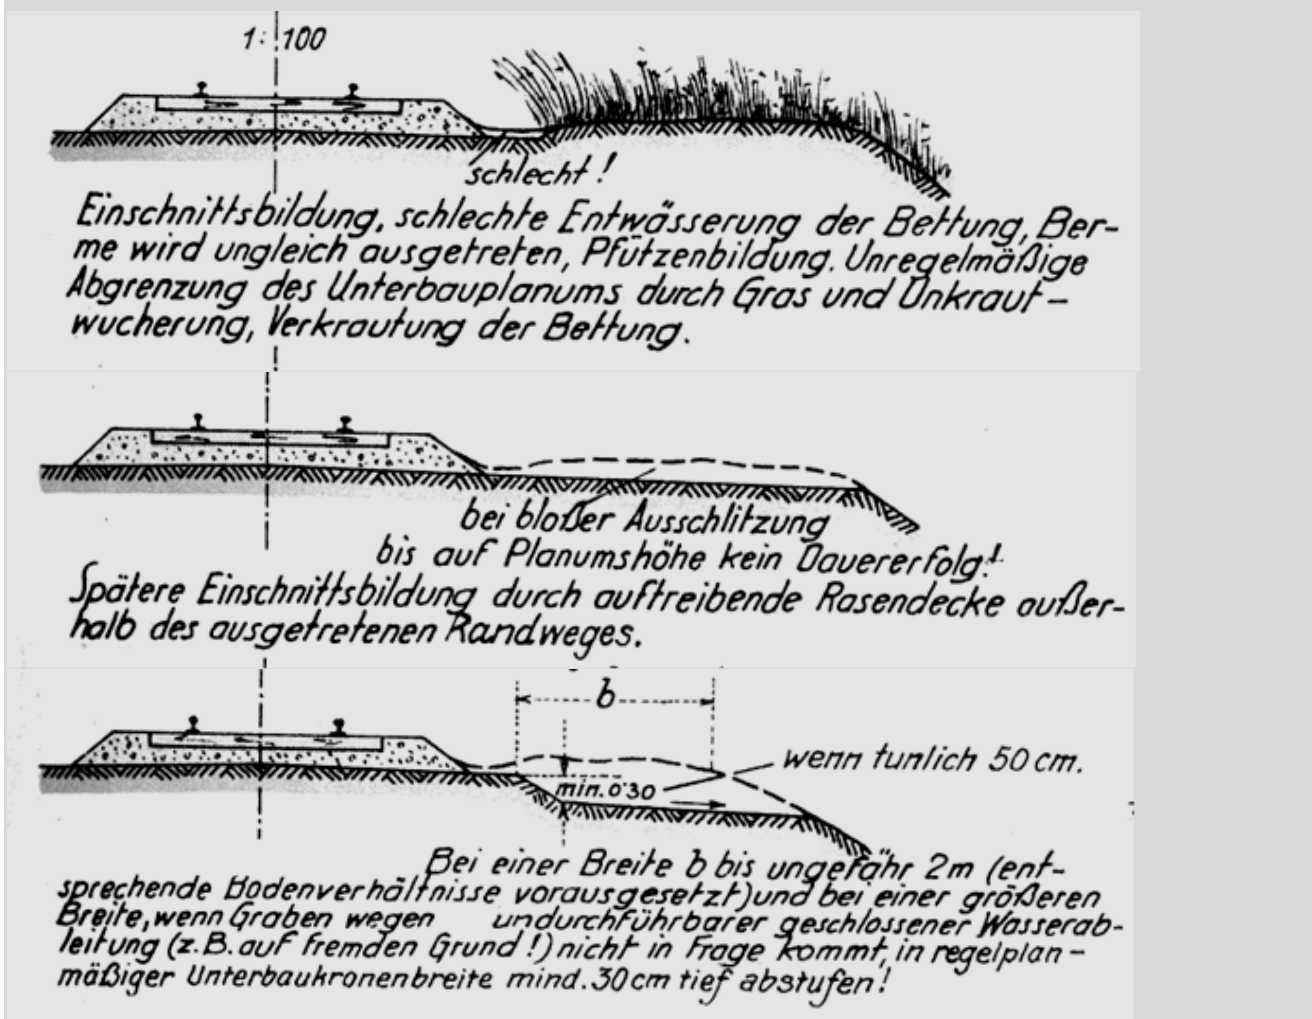 1:100
schlecht!
Einschnittsbildung, schlechte Entwässerung der Bettung, Ber-
me wird ungleich ausgetreten, Pfützenbildung. Unregelmäßige
Abgrenzung des Unterbauplanums durch Gras und Unkraut-
wucherung, Verkrautung der Bettung.
bei bloßer Ausschlitzung
bis auf Planumshöhe kein Dauererfolg!
Spätere Einschnittsbildung durch auftreibende Rasendecke außer-
halb des ausgetretenen Randweges.
b
wenn tunlich 50 cm.
min. 0.30
Bei einer Breite b bis ungefähr 2m (ent-
sprechende Bodenverhältnisse vorausgesetzt) und bei einer größeren
Breite, wenn Graben wegen undurchführbarer geschlossener Wasserab-
leitung (z.B. auf fremden Grund!) nicht in Frage kommt, in regelplan-
mäßiger Unterbaukronenbreite mind. 30 cm tief abstufen!